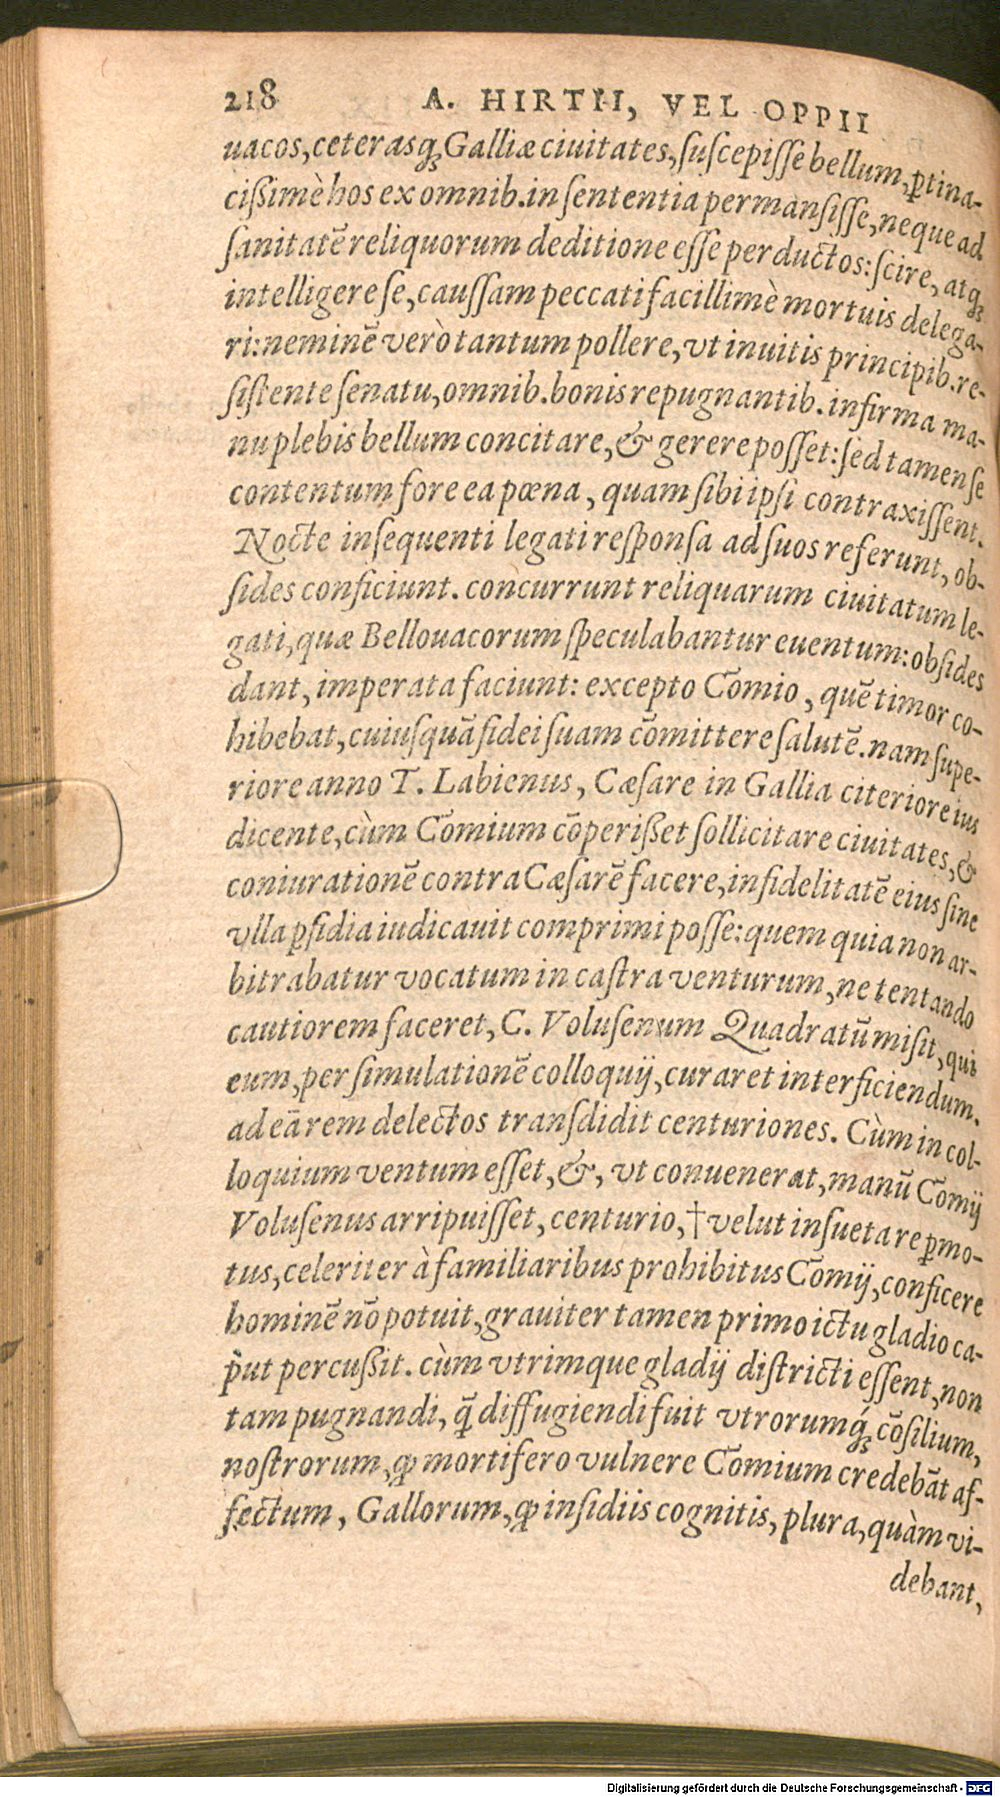 218 A. HIRTII, VEL OPPII
uacos, ceterasq́ꝫ Galliæ ciuitates, suscepisse bellum, ꝑtina-
cißimè hos ex omnib. in sententia permansisse, neque ad
sanitatē reliquorum deditione esse perductos: scire, atqꝫ
intelligere se, caussam peccati facillimè mortuis delega-
ri: neminē verò tantum pollere, vt inuitis principib. re-
sistente senatu, omnib. bonis repugnantib. infirma ma-
nu plebis bellum concitare, & gerere posset: sed tamen se
contentum fore ea pœna, quam sibi ipsi contraxissent.
Nocte insequenti legati responsa ad suos referunt, ob-
sides conficiunt. concurrunt reliquarum ciuitatum le-
gati, quæ Bellouacorum speculabantur euentum: obsides
dant, imperata faciunt: excepto Comio, quē timor co-
hibebat, cuiusquā fidei suam cōmittere salutē. nam supe-
riore anno T. Labienus, Cæsare in Gallia citeriore ius
dicente, cùm Comium cōperißet sollicitare ciuitates, &
coniurationē contra Cæsarē facere, infidelitatē eius sine
vlla ꝑfidia iudicauit comprimi posse: quem quia non ar-
bitrabatur vocatum in castra venturum, ne tentando
cautiorem faceret, C. Volusenum Quadratū misit, qui
eum, per simulationē colloquij, curaret interficiendum.
ad eā rem delectos transdidit centuriones. Cùm in col-
loquium ventum esset, &, vt conuenerat, manū Comij
Volusenus arripuisset, centurio, † velut insueta re ꝑmo-
tus, celeriter à familiaribus prohibitus Comij, conficere
hominē nō potuit, grauiter tamen primo ictu gladio ca-
put percußit. cùm vtrimque gladij districti essent, non
tam pugnandi, q̄̃ diffugiendi fuit vtrorumq́ꝫ cōsilium,
nostrorum, ꝙ mortifero vulnere Comium credebāt af-
fectum, Gallorum, ꝙ insidiis cognitis, plura, quàm vi-
debant,
Digitalisierung gefördert durch die Deutsche Forschungsgemeinschaft - DFG